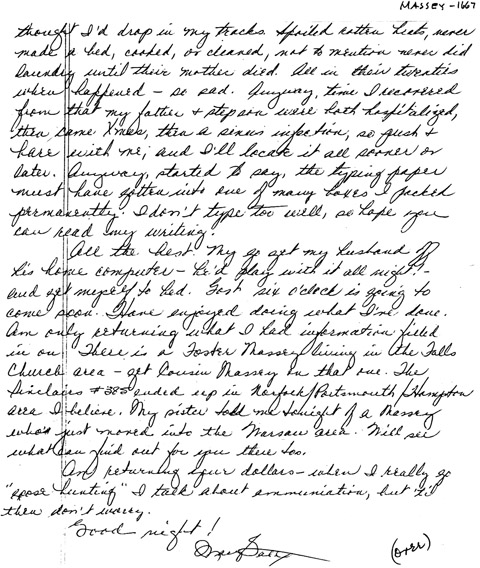 MASSEY-1667
thought I'd drop in my tracks. Spoiled rotten kids, never
made a bed, cooked, or cleaned, not to mention never did
laundry until their mother died. All in their twenties
when happened - so sad. Anyway, time I recovered
from that my father & stepson were both hospitalized,
then came Xmas, then a sinus infection, so gush &
bare with me, and I'll locate it all sooner or
later. Anyway, started to say, the typing paper
must have gotten into one of many boxes I packed
permanently. I don't type too well, so hope you
can read my writing.
All the best. My go get my husband off
his home computer - he'd play with it all night! -
and get myself to bed. Gosh six o'clock is going to
come soon. Have enjoyed doing what I've done.
Am only returning what I had information filled
in on. There is a Foster Massey living in the Falls
Church area - get Cousin Massey on that one. The
Sinclairs #385 ended up in Norfolk/Portsmouth/Hampton
area I believe. My sister told me tonight of a Massey
who's just moved into the Warsaw area. Will see
what can find out for you there too.
Am returning your dollars - when I really go
"hunting" I talk about ammunition, but 'til
then don't worry.
Good night!
(over)